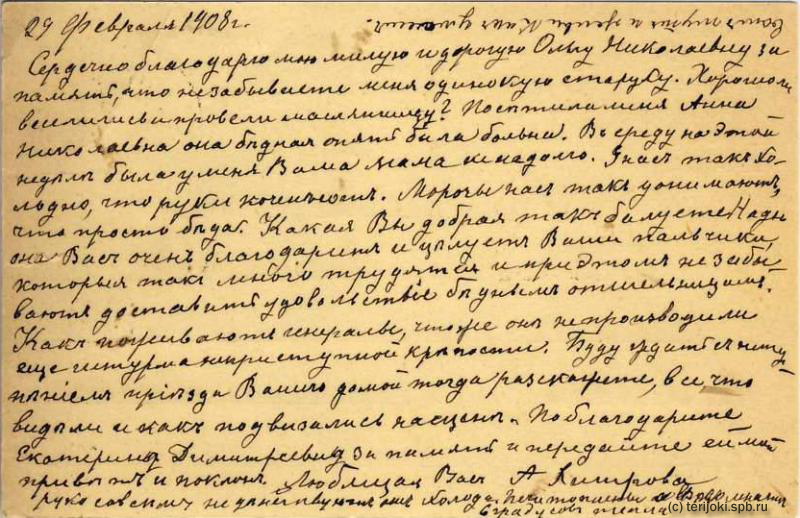 29 Февраля 1908 г.
Сердечно благодарю мою милую и дорогую Ольгу Николаевну за
память, что незабываете меня одинокую старуху. Хорошо ли
веселились и провели масляницу? Посетила меня Анна
Николаевна она бѣдная опять была больна. Въ среду на этой
недѣлѣ была у меня Ваша мама ненадолго. У насъ такъ хо-
лодно, что руки коченѣютъ. Морозы насъ такъ донимаютъ,
что просто бѣда. Какая Вы добрая такъ балуете Надю
она Васъ очень благодаритъ и цѣлуетъ Ваши пальчики,
которыя такъ много трудятся и при этомъ не забы-
ваютъ доставить удовольствіе бѣднымъ отшельницамъ.
Какъ поживаютъ генералы, что же они не производили
еще штурма неприступной крѣпости. Буду ждать съ нетер-
пѣніемъ пріѣзда Вашего домой тогда разскажете, все, что
видѣли и какъ подвизались на сценѣ. Поблагодарите
Екатерину Димитріевну за память и передайте ей мой
привѣтъ и поклонъ. Любящая Васъ А Хитрова
холода.
градусовъ тепла
(c) terijoki.spb.ru